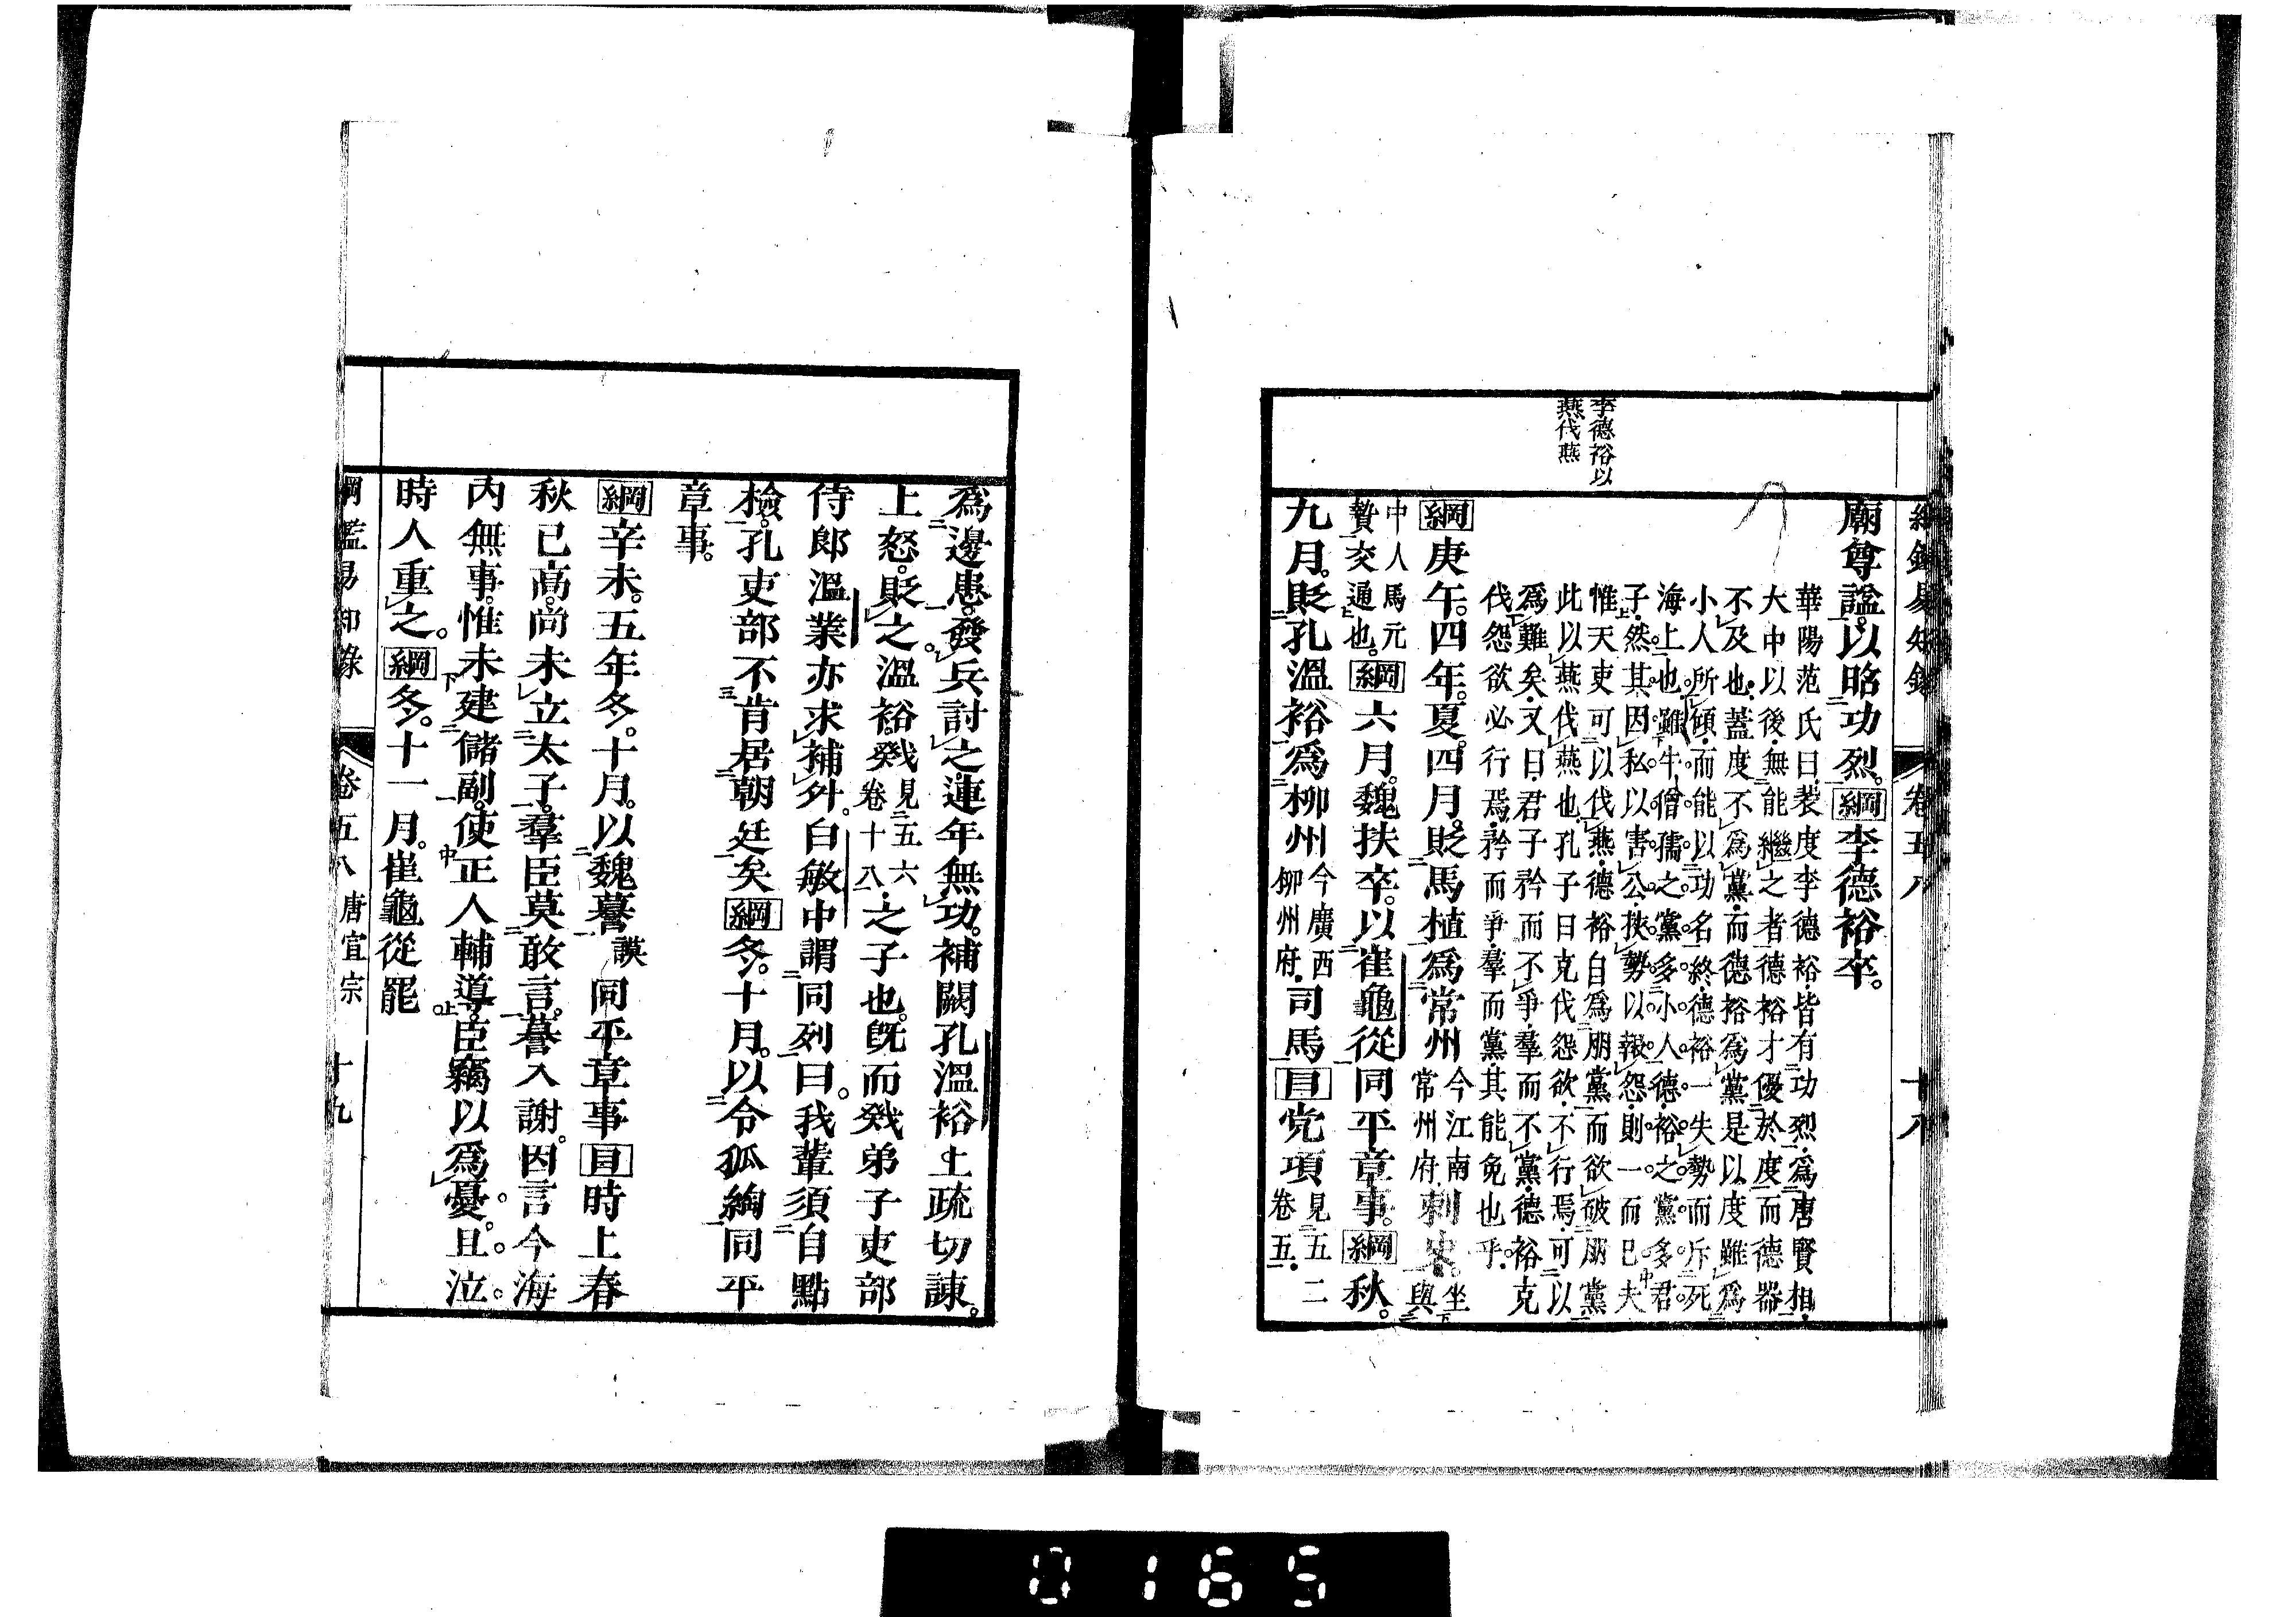 綱鑑易知錄 卷五八 十八
李德裕以
燕伐燕
廟尊謚。以昭功烈。綱李德裕卒。
華陽范氏曰裴度李德裕皆有功烈爲唐賢相
大中以後無能繼之者德裕才優於度而德器
不及也蓋度不爲黨而德裕爲黨是以度雖爲
小人所傾而能以功名終德裕一失勢而斥死
海上也雖牛僧孺之黨多小人德裕之黨多君
子然其因私以害公挾勢以報怨則一而已夫
惟天吏可以伐燕德裕自爲朋黨而欲破朋黨
此以燕伐燕也孔子曰克伐怨欲不行焉可以
爲難矣又曰君子矜而不爭羣而不黨德裕克
伐怨欲必行焉矜而爭羣而黨其能免也乎
綱庚午。四年。夏。四月。貶馬植爲常州今江南常州府刺史。坐與
中人馬元贄交通也。綱六月。魏扶卒。以崔龜從同平章事。綱秋。
九月。貶孔溫裕爲柳州今廣西柳州府司馬目党項見五二卷五
爲邊患。發兵討之連年無功。補闕孔溫裕上疏切諫。
上怒。貶之。溫裕。戣見五六卷十八之子也。旣而戣弟子吏部
侍郎溫業亦求補外。白敏中謂同列曰。我輩須自點
檢。孔吏部不肯居朝廷矣綱冬。十月。以令狐綯同平
章事。
綱辛未。五年冬。十月。以魏謩謨同平章事目時上春
秋已高。尚未立太子。羣臣莫敢言。謩入謝。因言今海
內無事。惟未建儲副。使正人輔導。臣竊以爲憂。且泣。
時人重之。綱冬。十一月。崔龜從罷
綱鑑易知錄 卷五八 唐宣宗 十九
0165